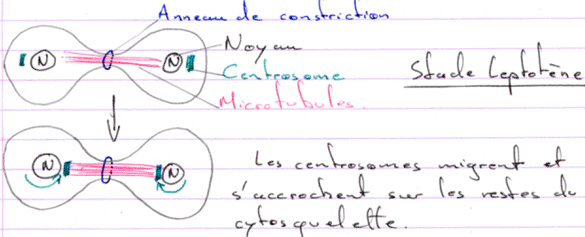 Anneau de constriction
N
N
Noyau
Centrosome
Microtubules.
Stade Leptotène
N
N
Les centrosomes migrent et
s'accrochent sur les restes du
cytosquelette.